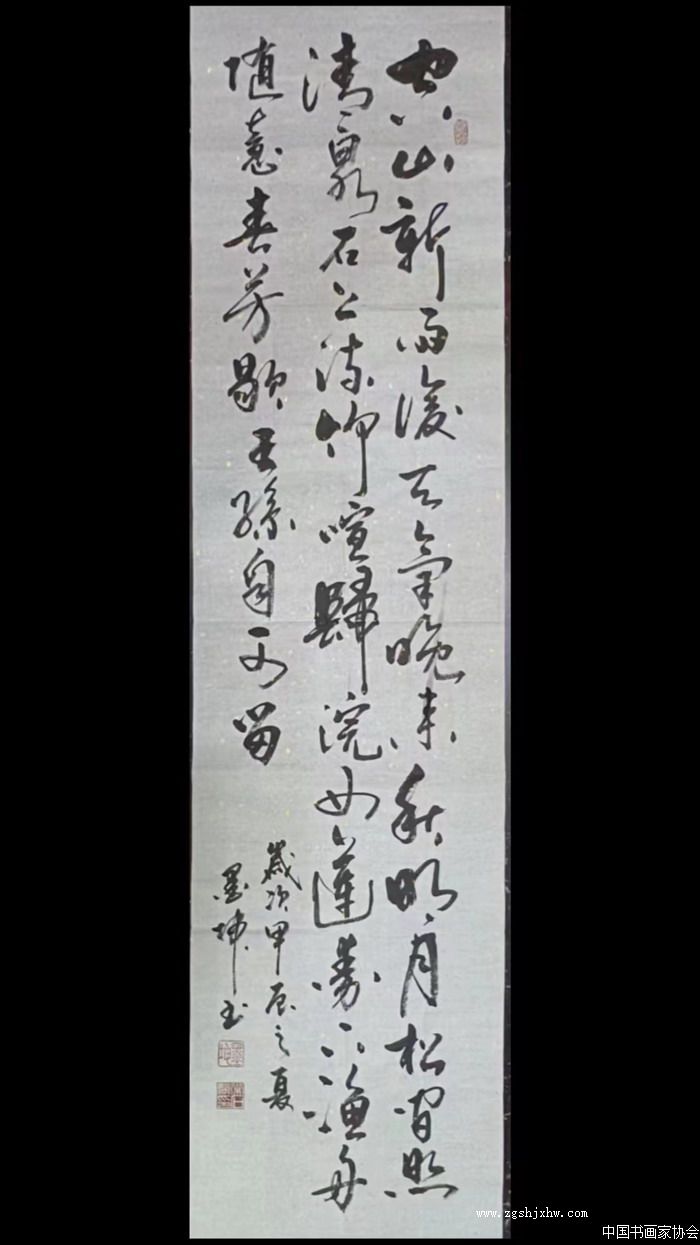 空山新雨後天氣晚来秋明月松间照
清泉石上流竹喧歸浣女蓮動下漁舟
随意春芳歇王孫自可留
歲次甲辰之夏
墨书
www.zgshjxhw.com
中国书画家协会